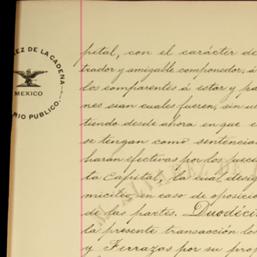 EZ DE LA CADENA
MEXICO
RIO PUBLICO.
petal, con el carácter de
trador y amigable componedor, á
los comparentes á estar y pa
nes sean cuales fueren, sin ul
tiendo desde ahora en que e
se tengan como sentencias
harán efectivas por los juece
ta Capital, la cual desig
micilio en caso de oposició
de las partes. Duodéci
la presente transacción los
y Terrazas por su prop